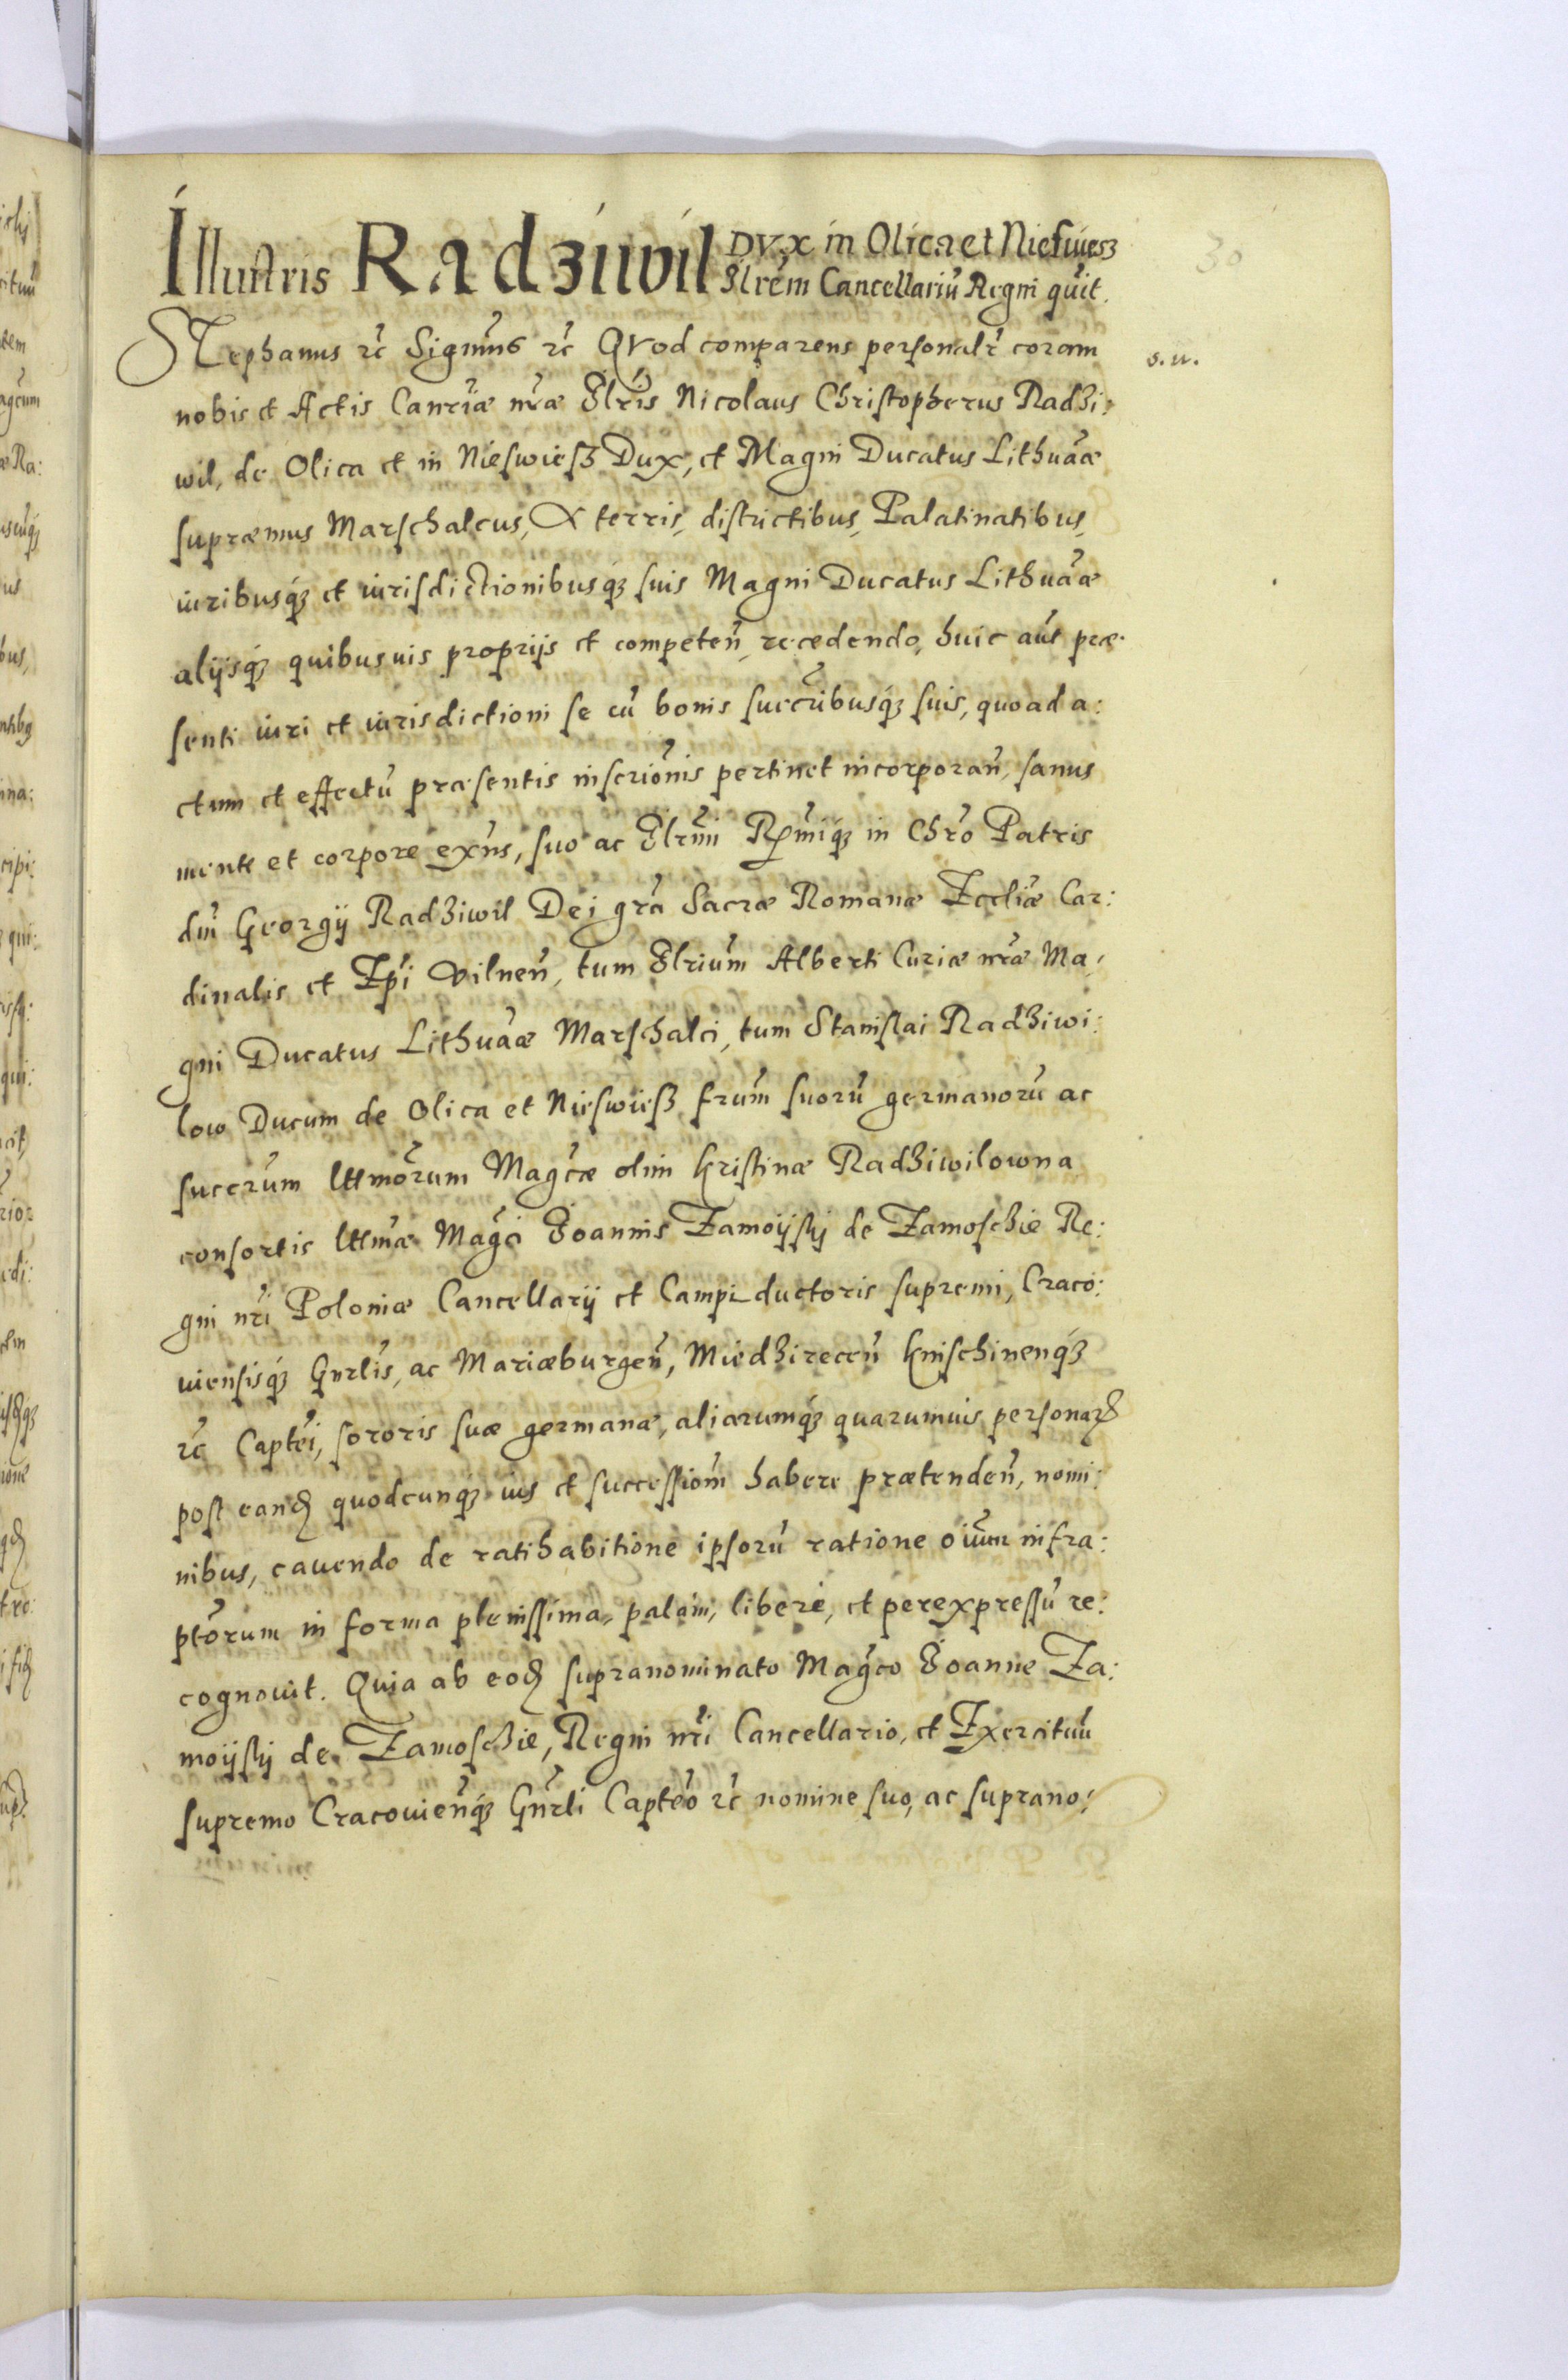 Illustris Radziwil Dux in Olica et Nieswiesz
Illrem Cancellariũ Regni quit.
30
Stephanus rc̃ Signm̃us rc̃ Quod comparens personalr̃ coram
s. n.
nobis et Actis Canrĩæ nr̃æ Illrĩs Nicolaus Christopherus Radzi:
wil, de Olica et in Nieswiesz Dux, et Magni Ducatus Lithuãæ
supræmus Marschalcus, A terris, districtibus, Palatinatibus,
iuribusq́ꝫ et iurisdictionibusq́ꝫ suis Magni Ducatus Lithuãæ
alijsq́ꝫ quibusuis proprijs et competeñ, recedendo, huic aũt præ:
senti iuri et iurisdictioni se cũ bonis succr̃ibusq́ꝫ suis, quoad a:
ctum et effectũ præsentis inscriõnis pertinet incorporañ, sanus
mente et corpore exñs, suo ac Illrm̃i Rm̃iq́ꝫ in Chrõ Patris
dñi Georgij Radziwil Dei grã Sacræ Romanæ Ecclĩæ Car:
dinalis et Epĩ Vilneñ, tum Illriũm Alberti Curiæ nr̃æ Ma:
gni Ducatus Lithuãæ Marschalci, tum Stanislai Radziwi:
low Ducum de Olica et Nieswiesz frũm suorũ germanorũ ac
succrũm lttimõrum Magc̃æ olim Kristinæ Radziwilowna
consortis lttmæ̃ Magc̃i Ioannis Zamoijskij de Zamoschie Re:
gni nr̃i Poloniæ Cancellarij et Campi ductoris supremi, Craco:
uiensisq́ꝫ Gnrlĩs, ac Mariæburgeñ, Miedzireceñ Knischinenq́ꝫ
rc̃ Captẽi, sororis suæ germanæ, aliarumq́ꝫ quarumuis personaꝝ
post eandẽ quodcunq́ꝫ ius et successiõm habere prætendeñ, nomi:
nibus, cauendo de ratihabitione ipsorũ ratione oĩum infra:
ptõrum in forma plenissima, palam, libere, et per expressũ re:
cognouit. Quia ab eodẽ supranominato Magc̃o Ioanne Za:
moijskij de Zamoschie, Regni nr̃i Cancellario, et Exercituũ
supremo Cracouieñq́ꝫ Gnr̃li Captẽo rc̃ nomine suo, ac suprano: